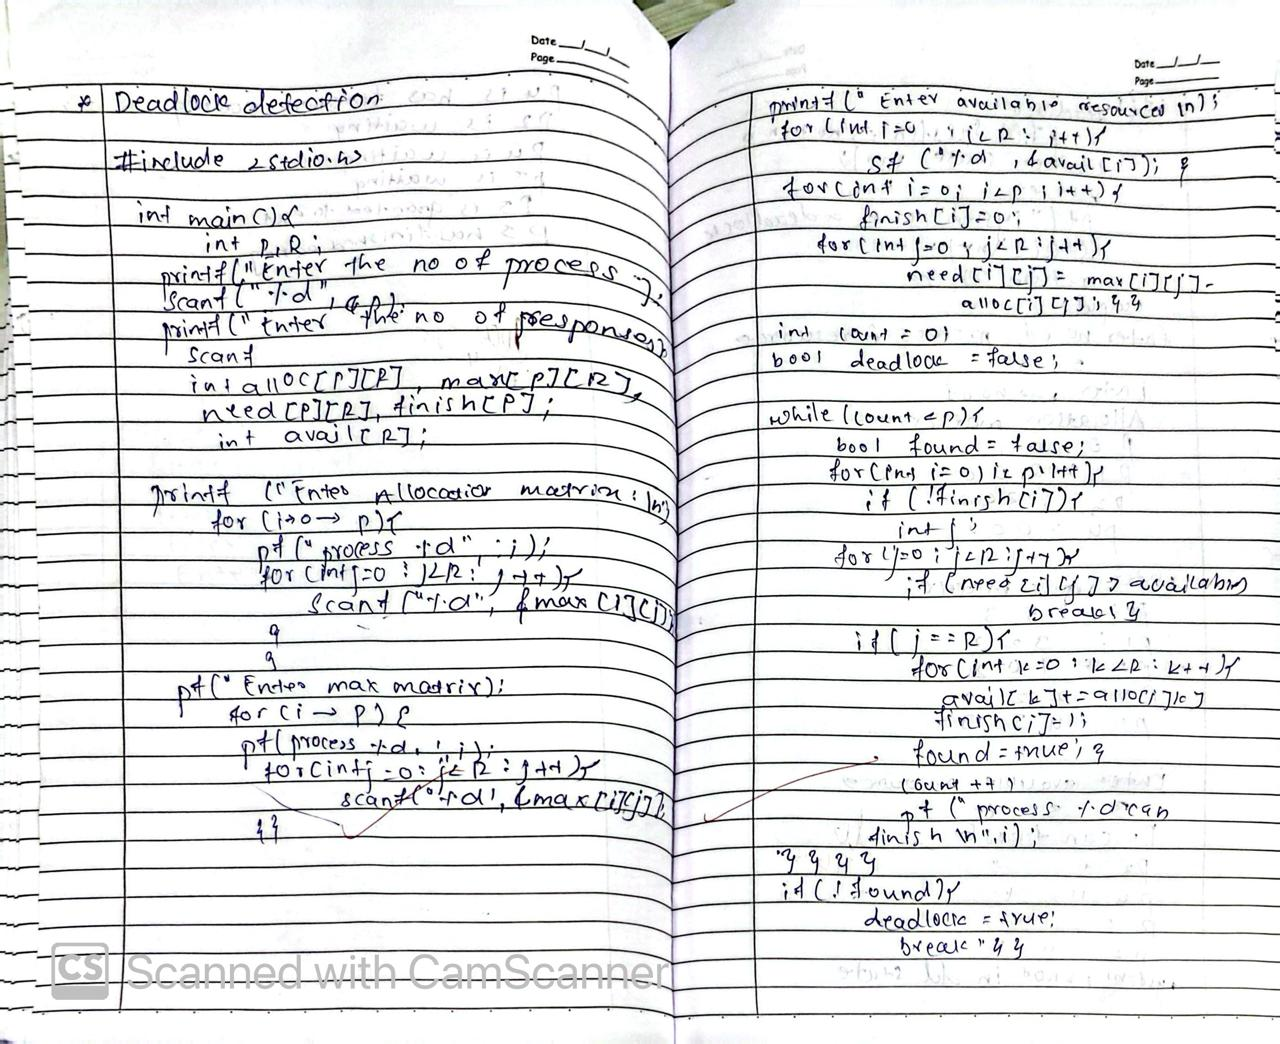 Date
Page
* Deadlock detection
#include <stdio.h>
int main(){
int P, R;
printf("Enter the no of process ");
scanf("%d", &P);
printf("Enter the no of responses");
scanf
int alloc[P][R], max[P][R],
need[P][R], finish[P];
int avail[R];
printf ("Enter Allocation matrix: \n")
for (i→0→ p){
pf (" process %d", i);
for (int j=0 : j<R : j++){
scanf ("%d", &max[i][j]);
}
}
pf(" Enter max matrix);
for (i → P) {
pf(process %d, i);
for(int j=0: j<R : j++){
scanf("%d", &max[i][j]);
}}
Date
Page
printf(" Enter available resources \n);
for(int i=0 ; i<R : i++){
sf ("%d , &avail[i]); }
for(int i=0; i<p ; i++){
finish[i]=0;
for(int j=0 ; j<R : j++){
need[i][j]= max[i][j]-
alloc[i][j]; } }
int count = 0;
bool deadlock = false;
while (count < p){
bool found = false;
for(int i=0; i<p ; i++){
if (!finish[i]){
int j ;
for(j=0 ; j<R ; j++){
if (need[i][j] > available)
break; }
if( j == R){
for(int k=0 : k<R : k++){
avail[k]+=alloc[i]k]
finish[i]=1;
found = true; }
count ++)
pf (" process %d can
finish \n", i);
} } } }
if(!found){
deadlock = true;
break " } }
CS Scanned with CamScanner